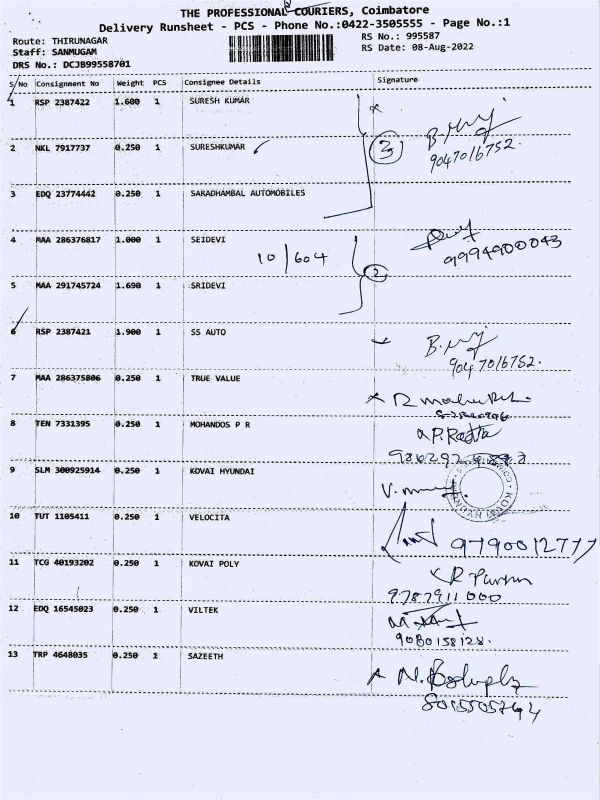 THE PROFESSIONAL COURIERS, Coimbatore
Delivery Runsheet - PCS - Phone No.:0422-3505555 - Page No.:1
Route: THIRUNAGAR
RS No.: 995587
Staff: SANMUGAM
RS Date: 08-Aug-2022
DRS No.: DCJB99558701
S/No Consignment No Weight PCS Consignee Details Signature
1 RSP 2387422 1.600 1 SURESH KUMAR
2 NKL 7917737 0.250 1 SURESHKUMAR 3
9047016752.
3 EDQ 23774442 0.250 1 SARADHAMBAL AUTOMOBILES
4 MAA 286376817 1.000 1 SEIDEVI
10/604 2 9994900043
5 MAA 291745724 1.690 1 SRIDEVI
6 RSP 2387421 1.900 1 SS AUTO
9047016752.
7 MAA 286375806 0.250 1 TRUE VALUE
8 TEN 7331395 0.250 1 MOHANDOS P R
9 SLM 300925914 0.250 1 KOVAI HYUNDAI
10 TUT 1105411 0.250 1 VELOCITA
9790012777
11 TCG 40193202 0.250 1 KOVAI POLY
9787911000
12 EDQ 16545023 0.250 1 VILTEK
9080158128.
13 TRP 4648035 0.250 1 SAZEETH